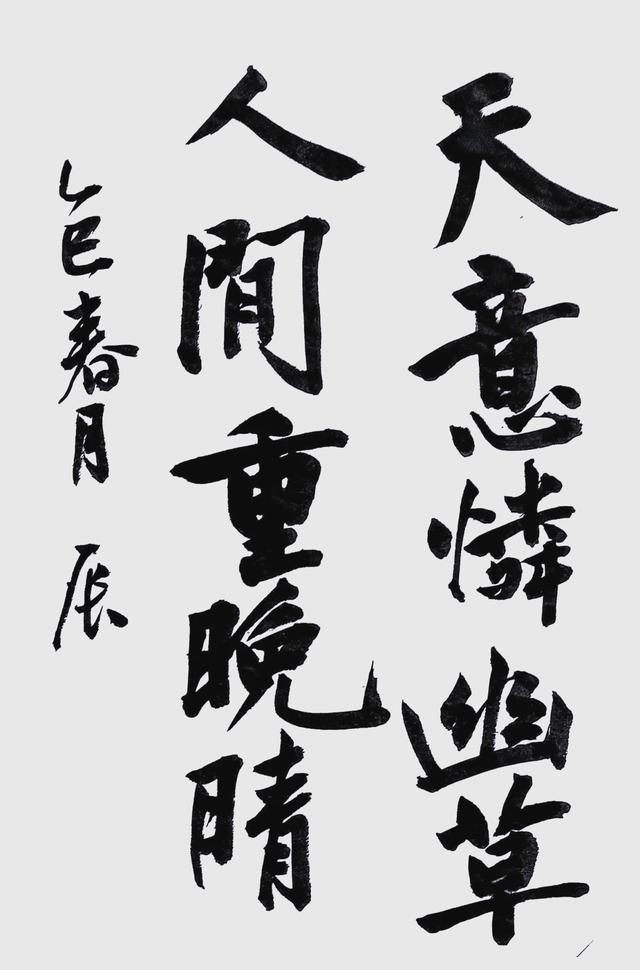 天意憐幽草
人間重晚晴
乙巳春月 辰